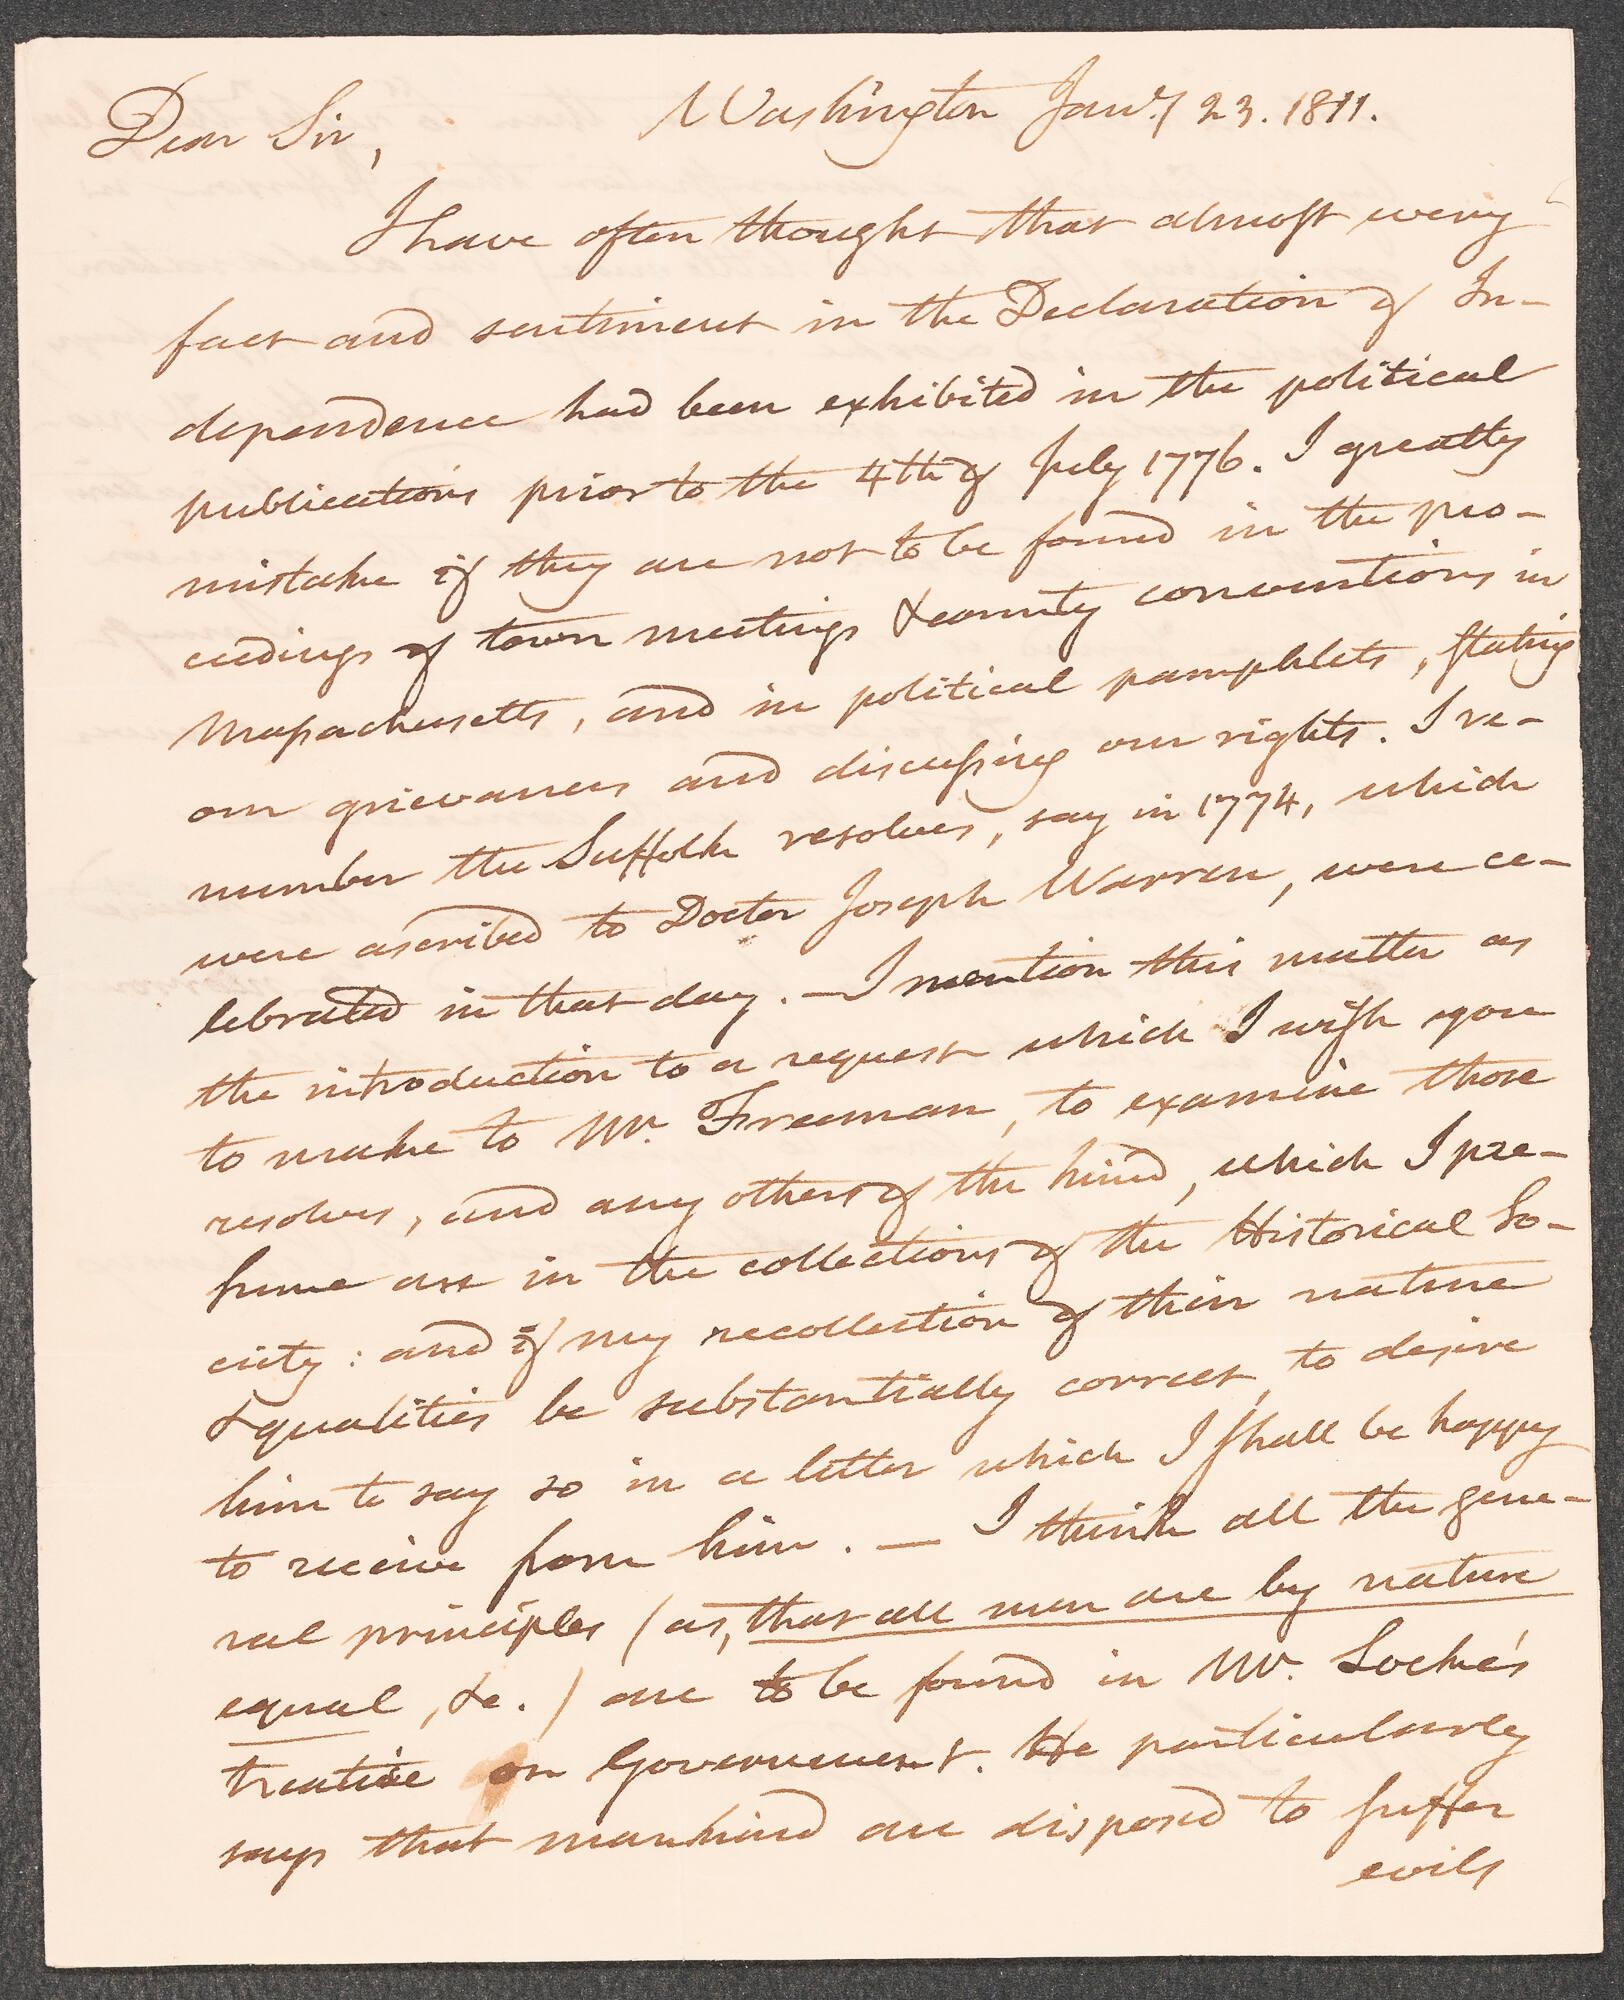 Washington Jany. 23. 1811.
Dear Sir,
I have often thought that almost every
fact and sentiment in the Declaration of In-
dependence had been exhibited in the political
publications prior to the 4th of July 1776. I greatly
mistake if they are not to be found in the pro-
ceedings of town meetings & county conventions in
Massachusetts, and in political pamphlets, stating
our grievances and discussing our rights. I re-
member the Suffolk resolves, say in 1774, which
were ascribed to Doctor Joseph Warren, were ce-
lebrated in that day. — I mention this matter as
the introduction to a request which I wish you
to make to Mr. Freeman, to examine those
resolves, and any others of the kind, which I pre-
sume are in the collections of the Historical So-
ciety: and if my recollection of their nature
& qualities be substantially correct, to desire
him to say so in a letter which I shall be happy
to receive from him. — I think all the gene-
ral principles (as, that all men are by nature
equal, &c.) are to be found in Mr. Locke's
treatise on Government. He particularly
says that mankind are disposed to suffer
evils